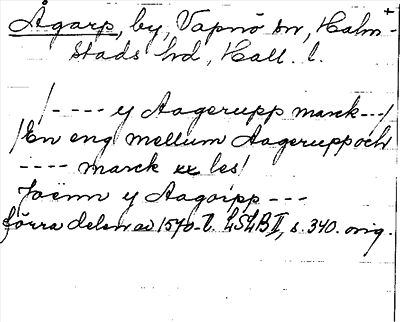 Ågarp, by, Vapnö sn, Halm-
stads hd, Hall. l.
/---- y Aagerupp marck---/
/En eng mellum Aagerupp och
---- marck xx les/
y Aagoipp ---
förra delen av 1570-t. LSLB II, s. 340. orig.